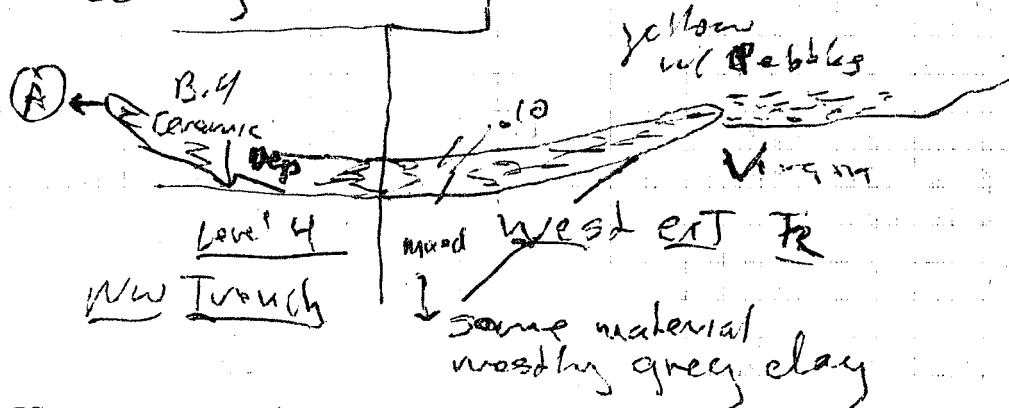 yellow
w/ Pebbles
A
B.4
Ceramic
Dep
.10
Virgin
Level 4
mixed
West ext TR
NW Trench
same material
mostly grey clay